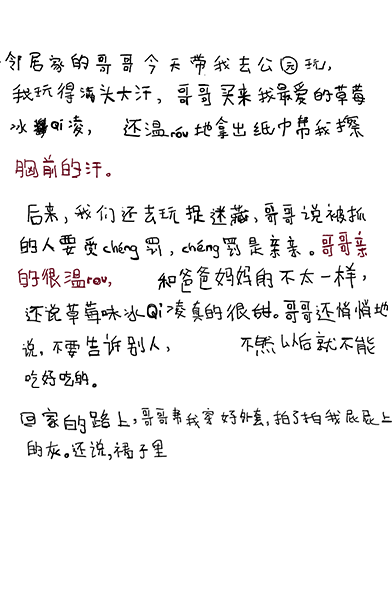 邻居家的哥哥今天带我去公园玩,
我玩得满头大汗，哥哥买来我最爱的草莓
冰Qi凌，还温róu地拿出纸巾帮我擦
胸前的汗。
后来，我们还去玩捉迷藏，哥哥说被抓
的人要受chéng罚，chéng罚是亲亲。哥哥亲
的很温rou,和爸爸妈妈的不太一样，
还说草莓味冰Qi凌真的很甜。哥哥还悄悄地
说，不要告诉别人，不然以后就不能
吃好吃的。
回家的路上，哥哥帮我穿好外套，拍了拍我屁屁上
的灰。还说，裙子里